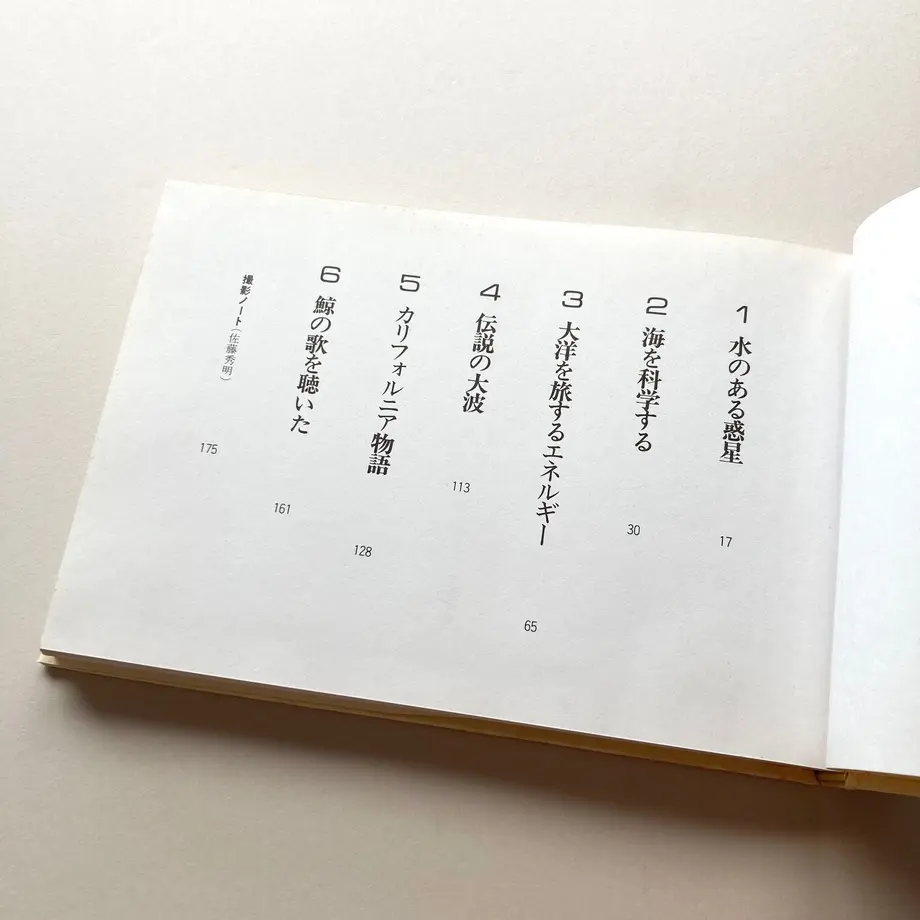 1 水のある惑星 17
2 海を科学する 30
3 大洋を旅するエネルギー 65
4 伝説の大波 113
5 カリフォルニア物語 128
6 鯨の歌を聴いた 161
撮影ノート(佐藤秀明) 175